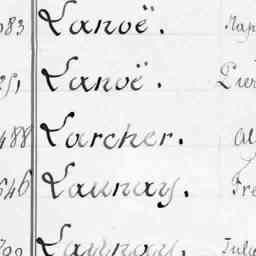 083 Lanoë.
Lanoë.
488 Larcher. Al
546 Launay. Fre
Launay. Jule